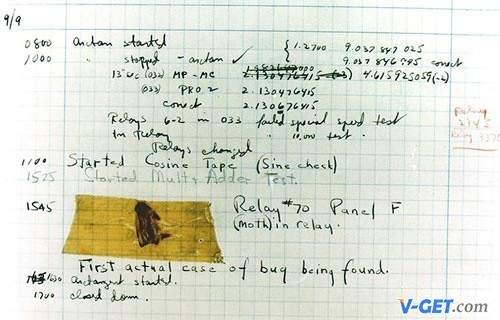 9/9
0800 antan started { 1.2700 9.037 847 025
1000 " stopped - antan ✓ 9.037 846 995 correct
13"uc (032) MP-MC 2.130476415 4.615925059(-2)
(033) PRO 2 2.130476415
correct 2.130676415
Relays 6-2 in 033 failed special speed test
in relay " 10,000 test .
Relays changed
1100 Started Cosine Tape (Sine check)
1525 Started Mult + Adder Test.
1545 Relay #70 Panel F
(moth) in relay.
First actual case of bug being found.
1630 antangent started.
1700 closed down.
Relay
2145
Relay 3370
V-GET.com